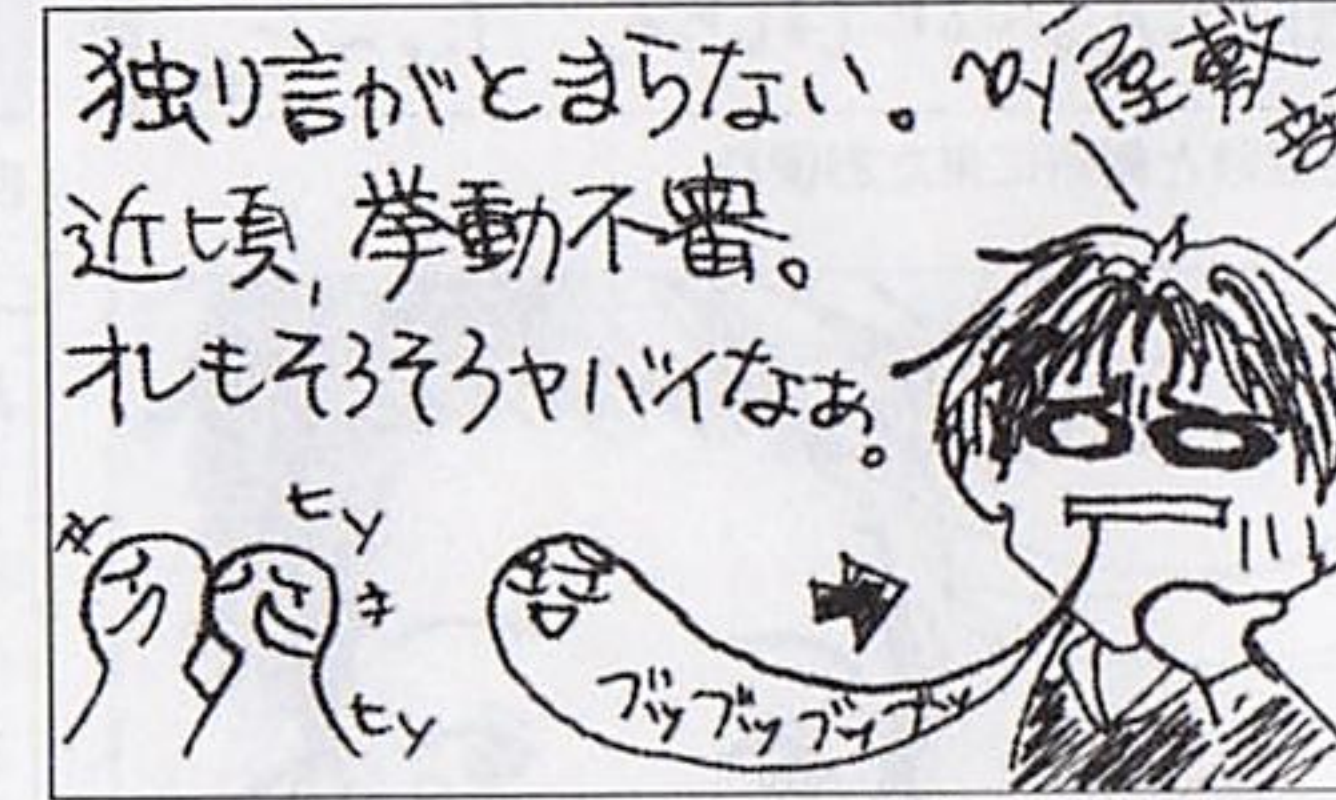 独り言がとまらない。
近頃、挙動不審。
オレもそろそろヤバイなぁ。
屋敷
ヒソ
ヒソ
ブツブツブツブツ